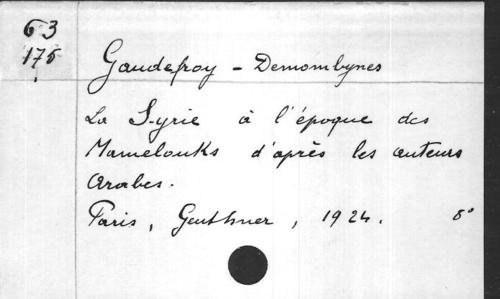 63
175
Gaudefroy - Demombynes
La Syrie à l'époque des
Mamelouks d'après les auteurs
Arabes.
Paris, Geuthner, 1924. 8°